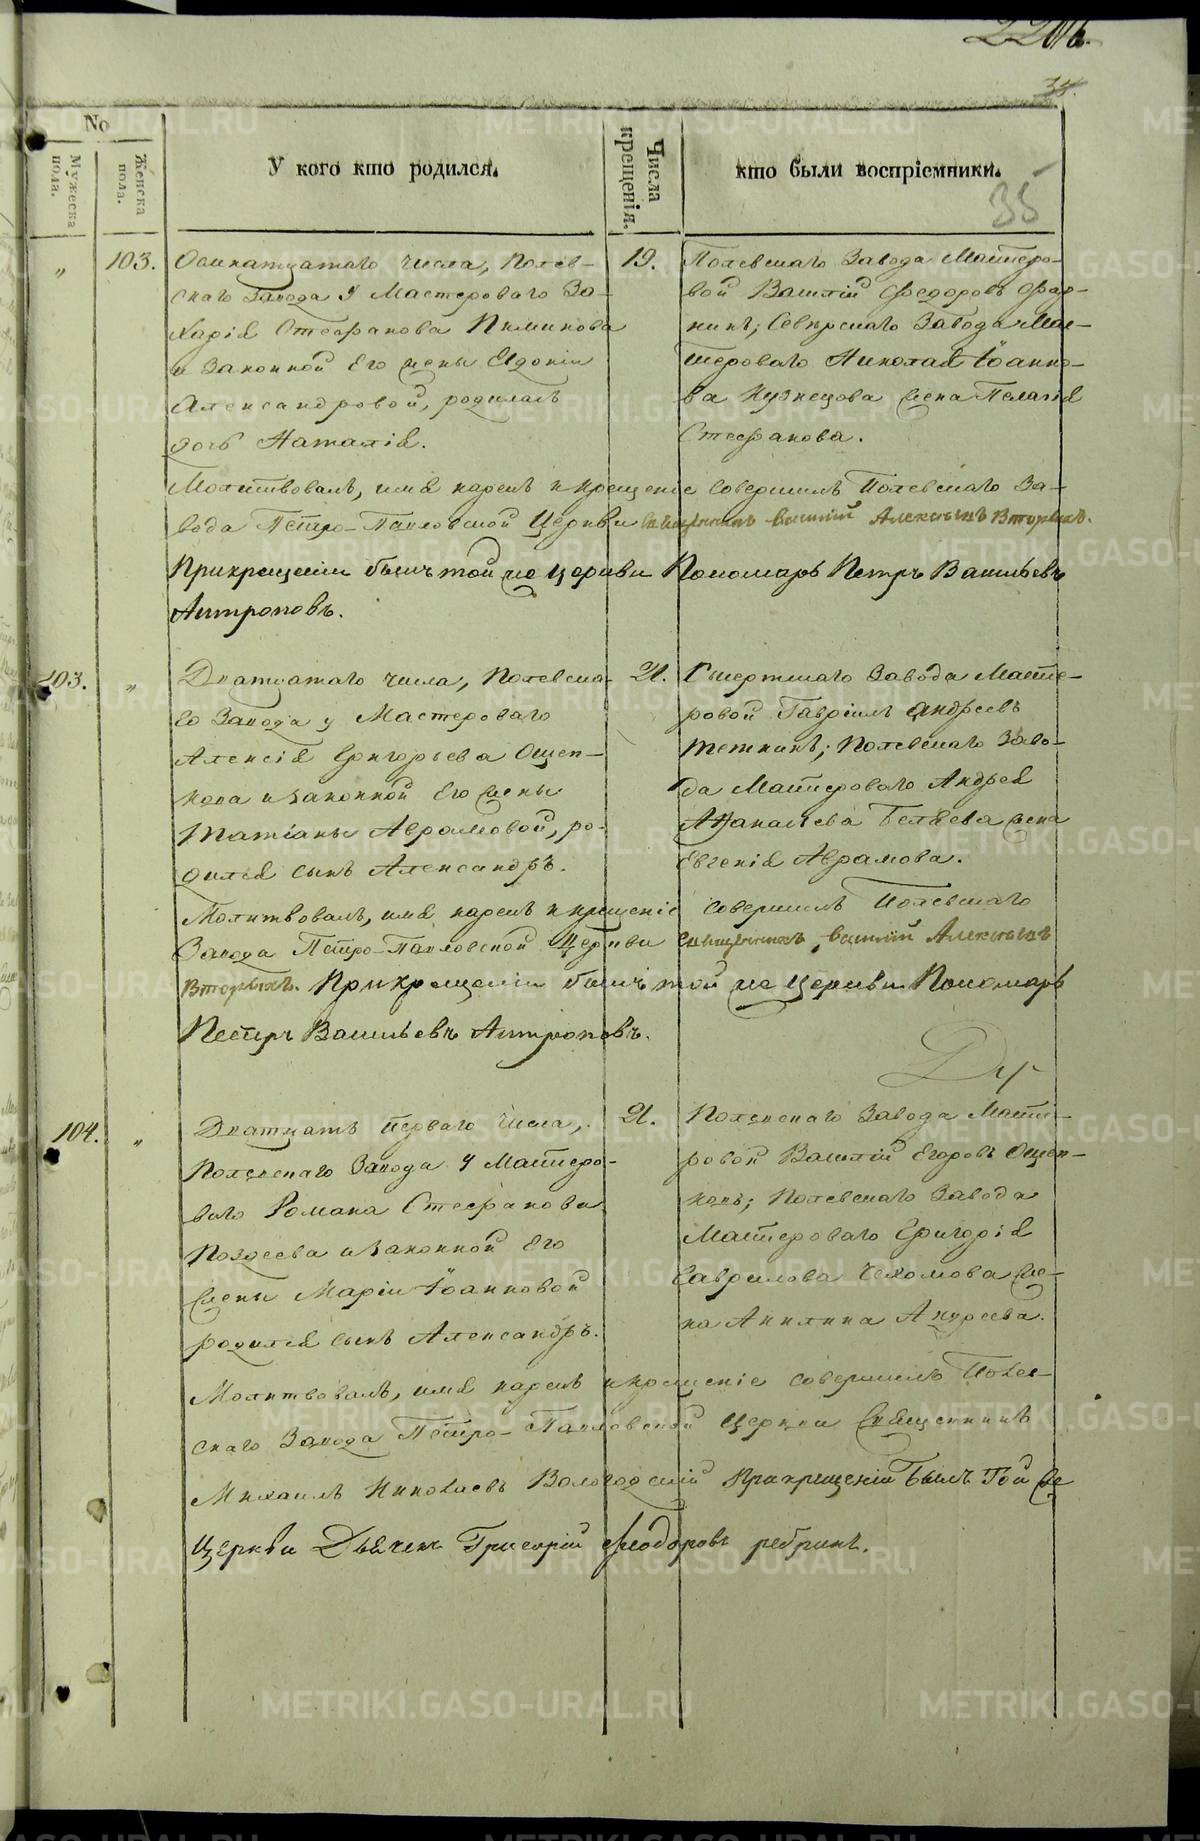 220 об.
35.
35
No
Мужеска пола.
Женска пола.
У кого кто родился.
Числа крещенія.
кто были воспріемники.
" 103.
Осмнатцатаго числа, Полев-
скаго Завода у Мастероваго За-
харія Стефанова Пименова
и законной Его жены Евдокіи
Александровой, родилась
дочь Наталія.
19.
Полевскаго Завода Мастеро-
вой Василій Федоровъ
Северскаго Завода Мас-
тероваго Николая Іоанно-
ва Кузнецова жена Пелагія
Стефанова.
Молитвовалъ, имя нарекъ и крещеніе совершилъ Полевскаго За-
вода Петро-Павловской Церкви Священникъ Василій Алексѣевъ Вторыхъ.
При крещеніи былъ той же церкви Пономарь Петръ Васильевъ
Антроповъ.
103. "
Дватцатаго числа, Полевска-
го Завода у Мастероваго
Алексія Григорьева Ощеп-
кова и законной Его жены
Татіаны Аврамовой, ро-
дился сынъ Александръ.
21.
Сысертскаго Завода Масте-
ровой Гавріилъ Андреевъ
Полевскаго Заво-
да Мастероваго Андрея
Афанасьева Беляева жена
Евгенія Аврамова.
Молитвовалъ, имя нарекъ и крещеніе совершилъ Полевскаго
Завода Петро-Павловской Церкви Священникъ Василій Алексѣевъ
Вторыхъ. При крещеніи былъ той же Церкви Пономарь
Петръ Васильевъ Антроповъ.
104. "
Дватцать перваго числа,
Полевскаго Завода у Мастеро-
ваго Романа Стефанова
Поздеева и законной Его
жены Маріи Іоанновой
родился сынъ Александръ.
21.
Полевскаго Завода Масте-
ровой Василій Егоровъ Ощеп-
ковъ; Полевскаго Завода
Мастероваго Григорія
Гаврилова Чехомова же-
на Акилина Андреева.
Молитвовалъ, имя нарекъ и крещеніе совершилъ Полев-
скаго Завода Петро-Павловской Церкви Священникъ
Михаилъ Николаевъ Вологодскій При крещеніи былъ той же
Церкви Дьячекъ Григорій Феодоровъ Ребринъ.
METRIKI.GASO-URAL.RU